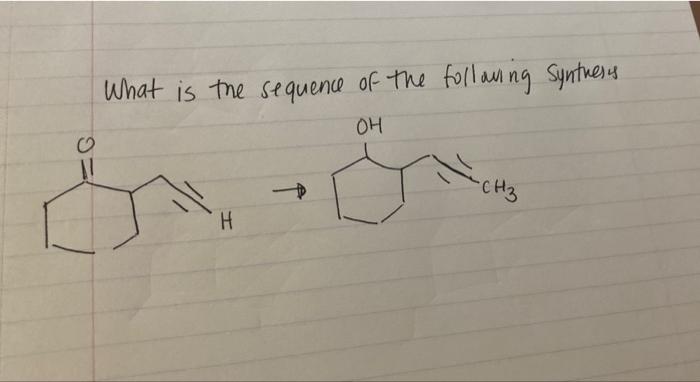 What is the sequence of the following Synthesis
O
OH
H
CH3